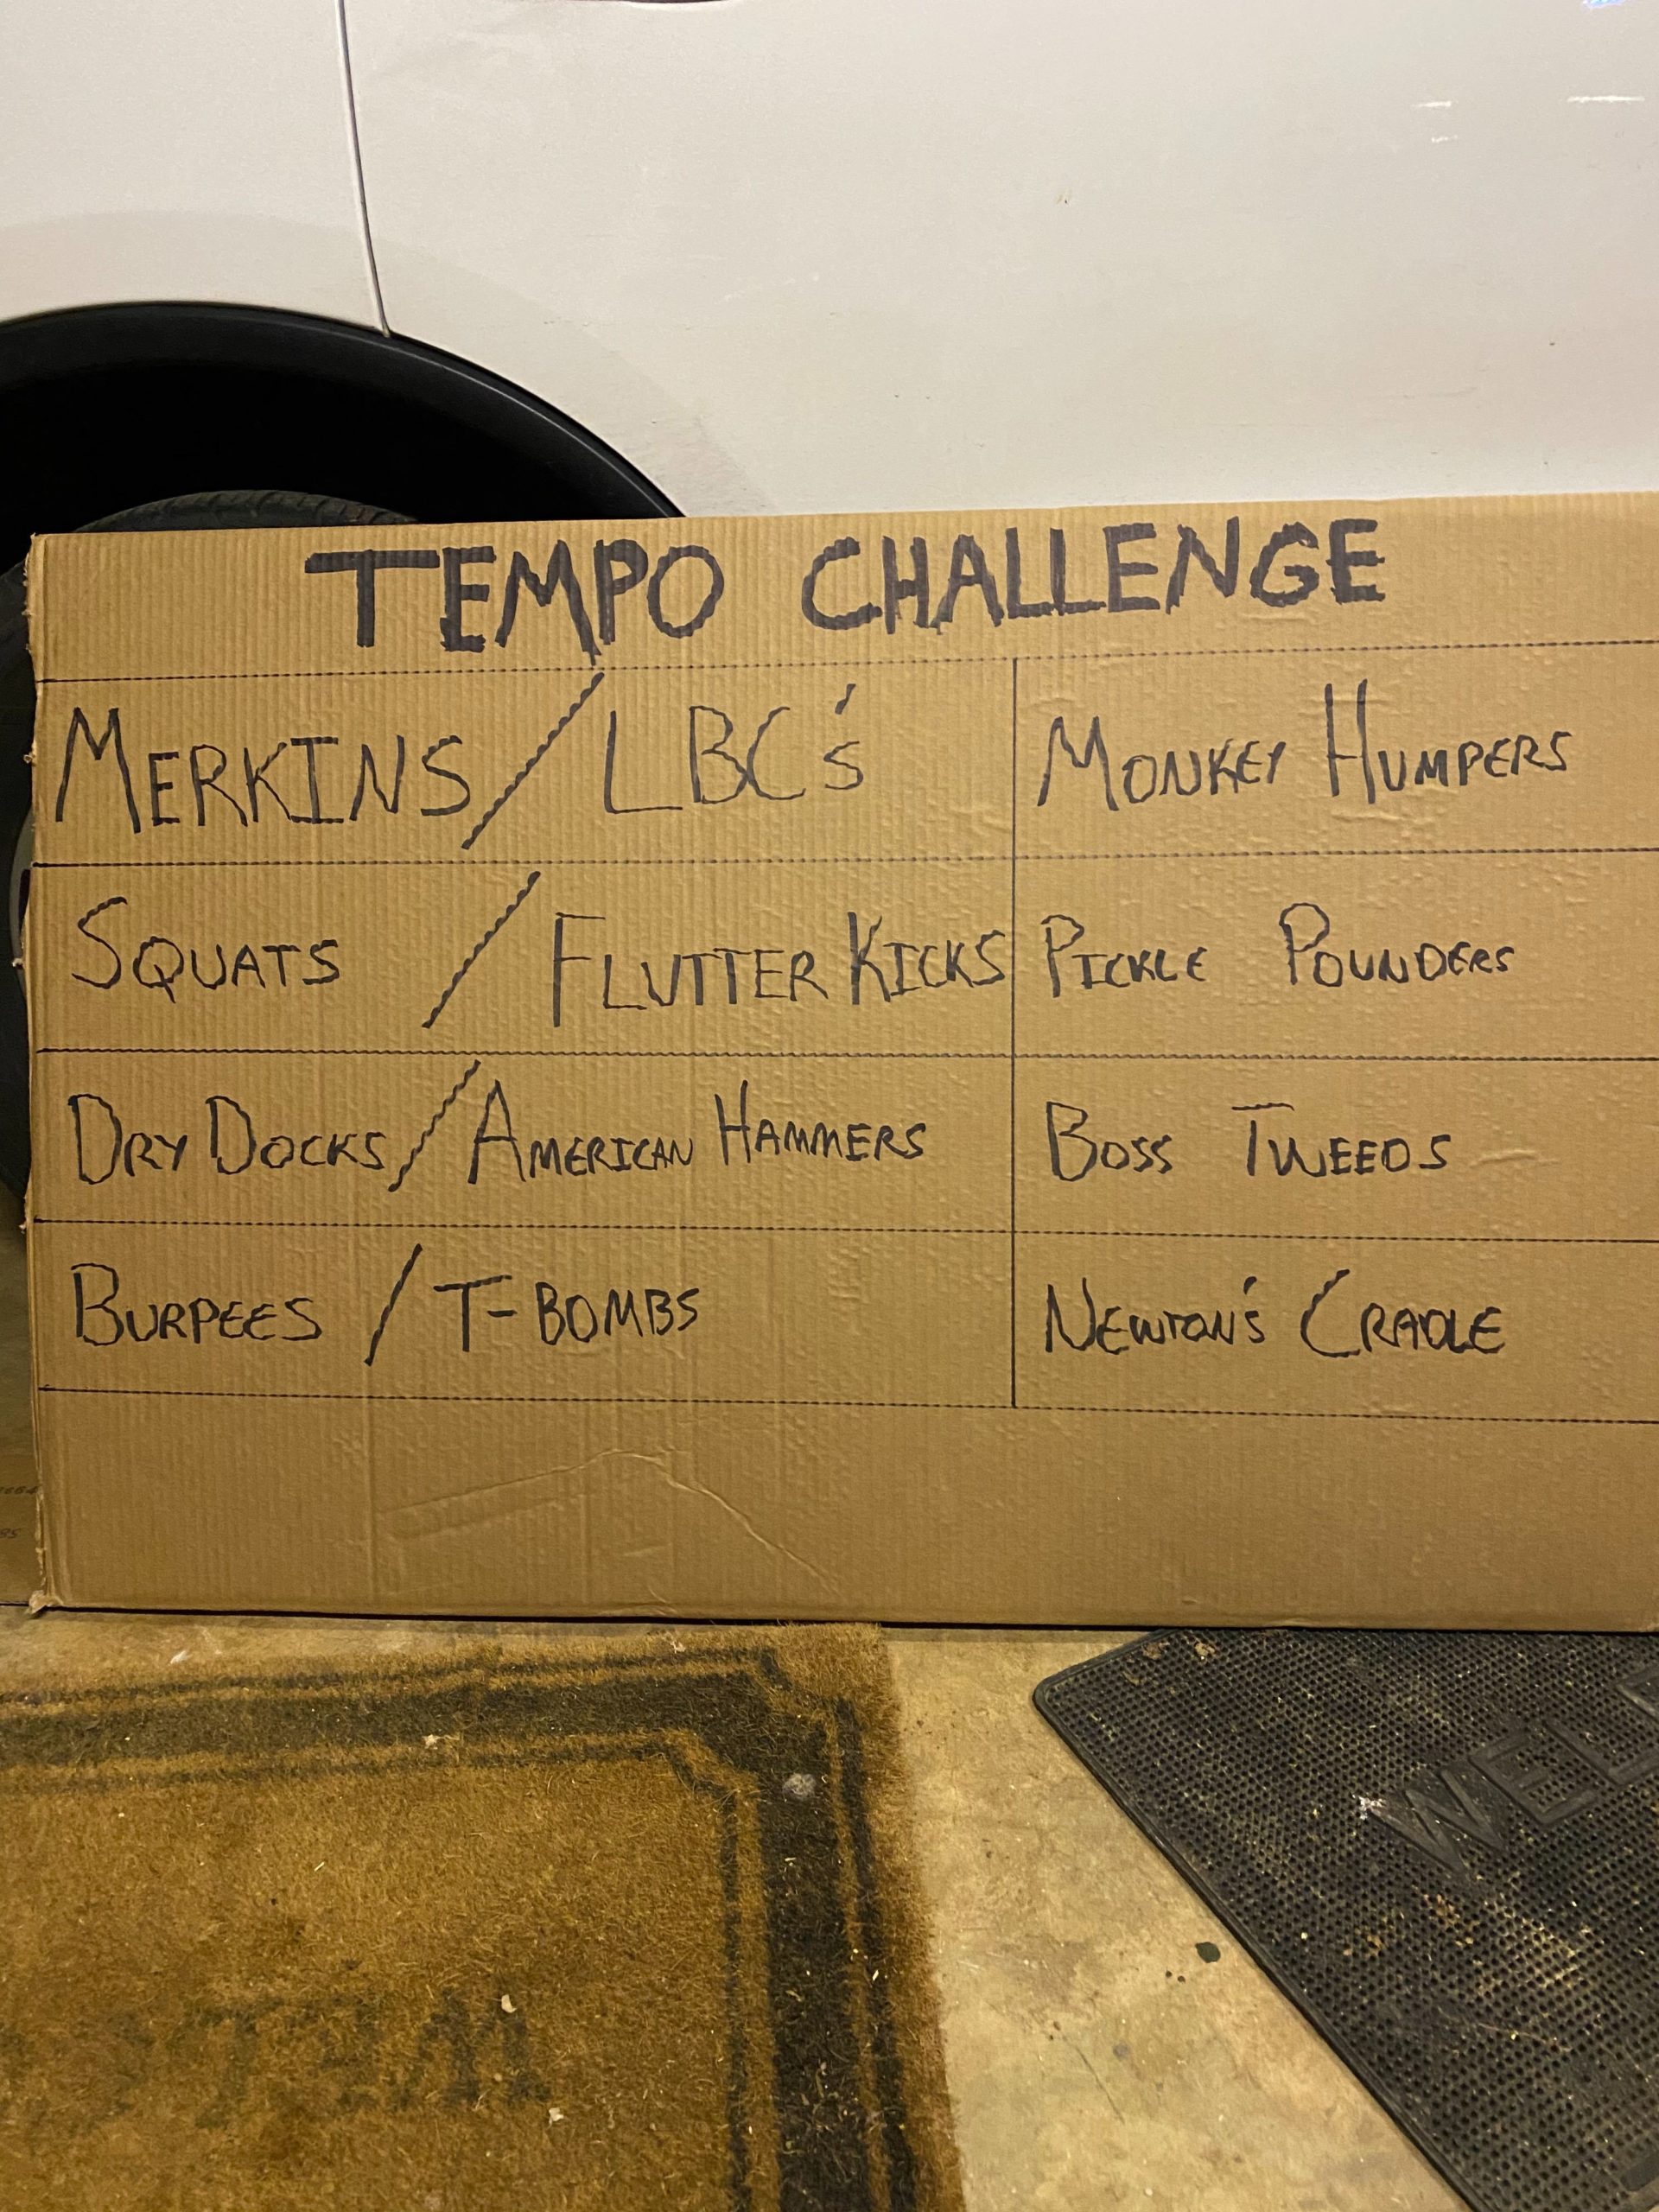 TEMPO CHALLENGE
MERKINS / LBC's MONKEY HUMPERS
SQUATS / FLUTTER KICKS PICKLE POUNDERS
DRY DOCKS / AMERICAN HAMMERS BOSS TWEEDS
BURPEES / T-BOMBS NEWTON'S CRADLE